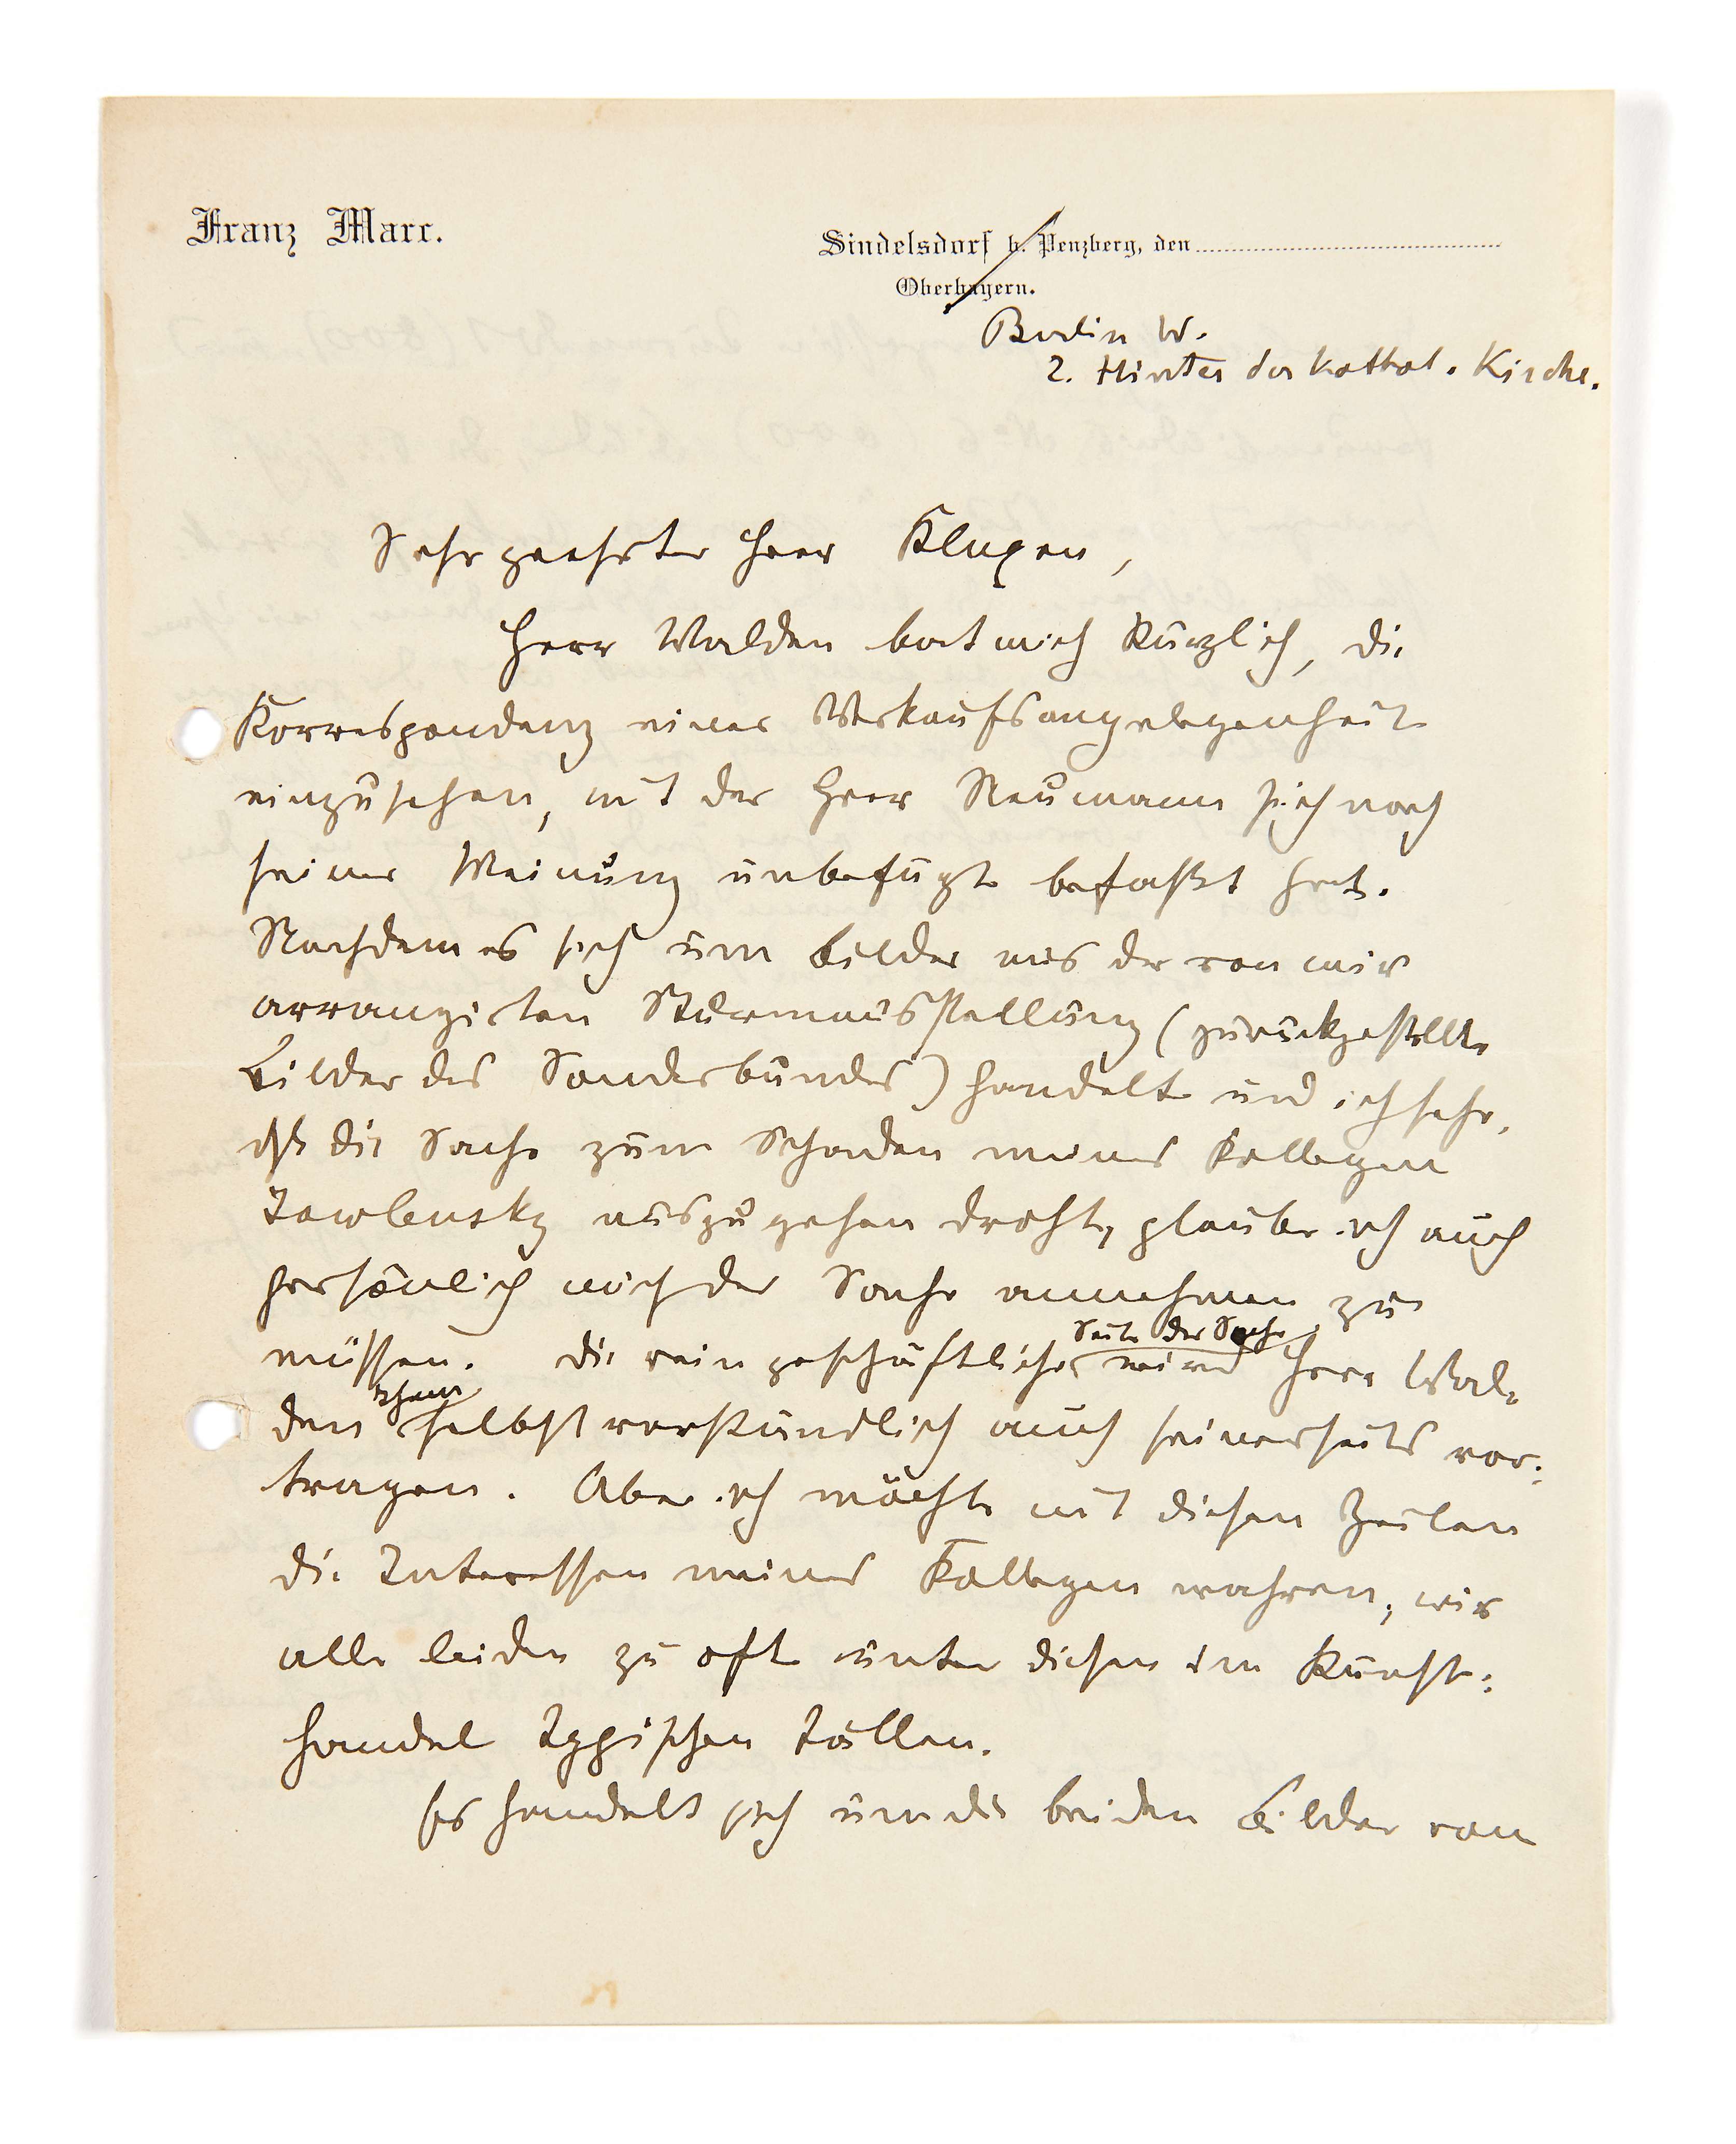 Franz Marc.
Sindelsdorf b. Penzberg, den
Oberbayern.
Berlin W.
2. Hinter der kathol. Kirche.
Sehr geehrter Herr Kluxen,
Herr Walden bat mich kürzlich, die
Korrespondenz einer Verkaufsangelegenheit
einzusehen, mit der Herr Neumann sich nach
seiner Meinung unbefugt befasst hat.
Nachdem es sich um Bilder aus der von mir
arrangierten Sturmausstellung (zurückgestellte
Bilder des Sonderbundes) handelt und ich sehe,
dss die Sache zum Schaden meines Kollegen
Jawlensky auszugehen droht, glaube ich auch
persönlich mich der Sache annehmen zu
müssen. Die rein geschäftliche Seite der Sache wird Herr Wal-
den Ihnen selbstverständlich auch seinerseits vor-
tragen. Aber ich möchte mit diesen Zeilen
die Interessen meines Kollegen wahren; wir
alle leiden zu oft unter diesen im Kunst-
handel typischen Fällen.
Es handelt sich um die beiden Bilder von